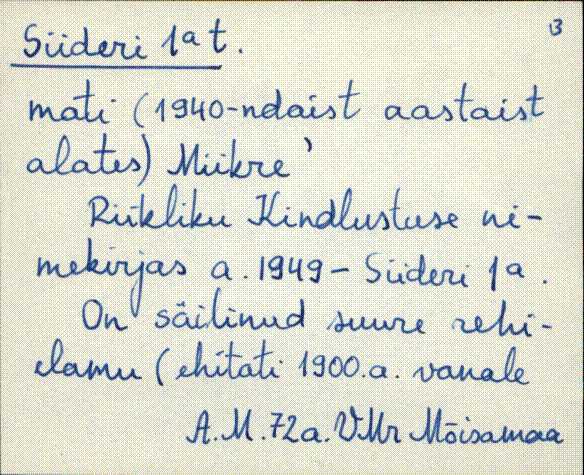 13
Siideri 1ª t.
mati (1940-ndaist aastaist
alates) Miikre'
Riikliku Kindlustuse ni-
mekirjas a. 1949 – Siideri 1ª.
On säilinud suure rehi-
elamu (ehitati 1900.a. vanale
A.M. 72a. VMr Mõisamaa